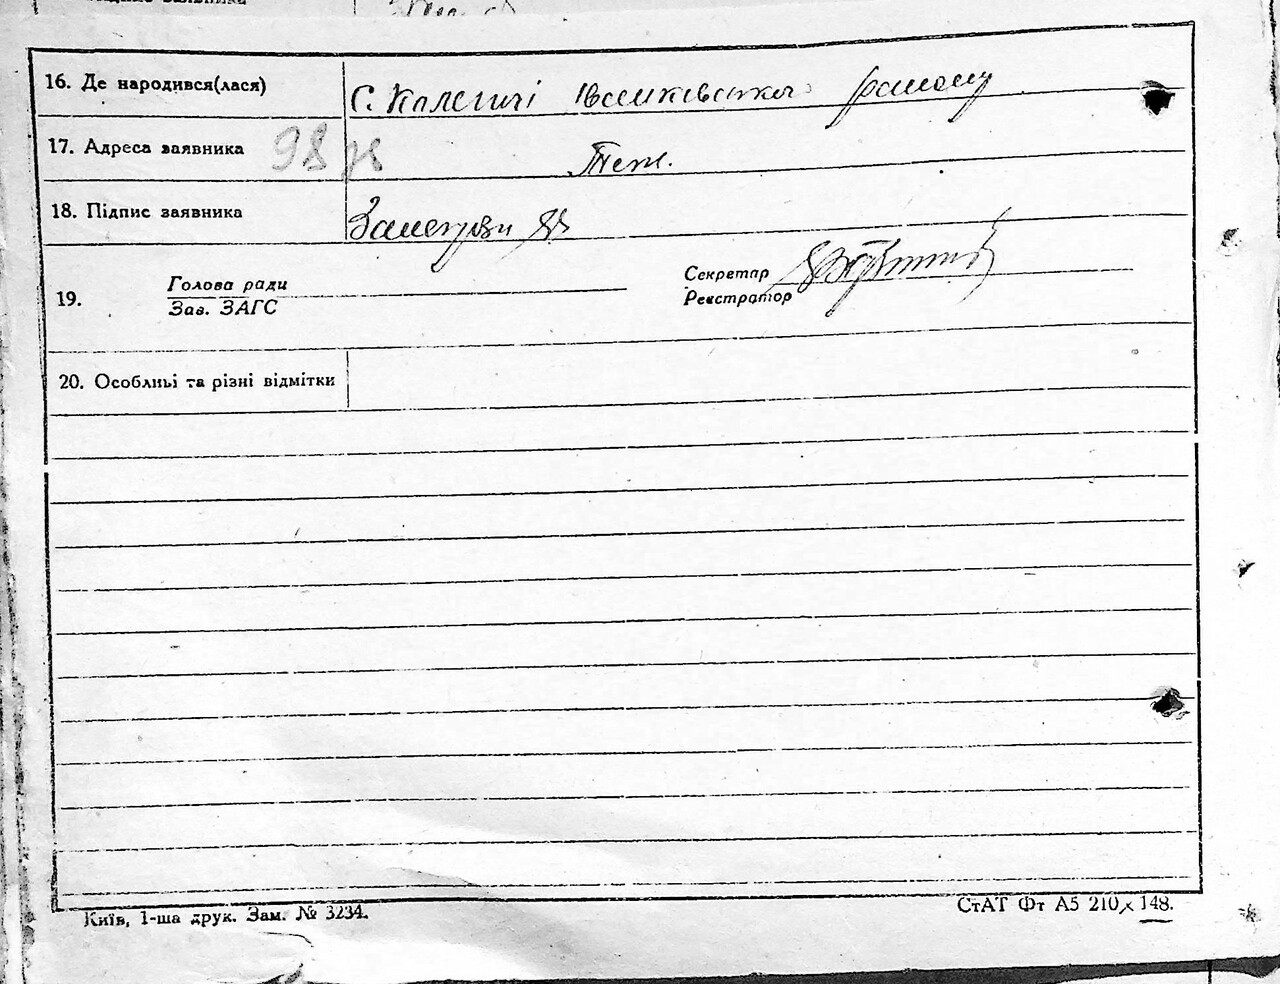 16. Де народився(лася) С. Калегичі Іванківського району
17. Адреса заявника 98 Теж.
18. Підпис заявника
Голова ради Секретар
19. Зав. ЗАГС Реєстратор
20. Особливі та різні відмітки
Київ, 1-ша друк. Зам. № 3234.
СтАТ Фт А5 210 х 148.